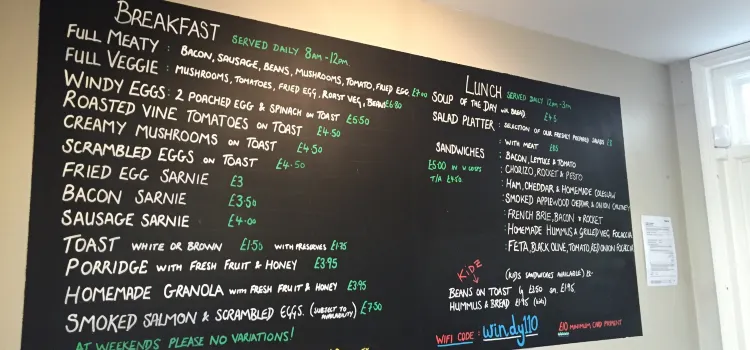 BREAKFAST SERVED DAILY 8AM - 12PM
FULL MEATY : BACON, SAUSAGE, BEANS, MUSHROOMS, TOMATO, FRIED EGG £7.00
FULL VEGGIE : MUSHROOMS, TOMATOES, FRIED EGG, ROAST VEG, BEANS £6.80
WINDY EGGS : 2 POACHED EGG & SPINACH ON TOAST £5.50
ROASTED VINE TOMATOES ON TOAST £4.50
CREAMY MUSHROOMS ON TOAST £4.50
SCRAMBLED EGGS ON TOAST £4.50
FRIED EGG SARNIE £3
BACON SARNIE £3.50
SAUSAGE SARNIE £4.00
TOAST WHITE OR BROWN £1.50 WITH PRESERVES £1.75
PORRIDGE WITH FRESH FRUIT & HONEY £3.95
HOMEMADE GRANOLA WITH FRESH FRUIT & HONEY £3.95
SMOKED SALMON & SCRAMBLED EGGS. (SUBJECT TO AVAILABILITY) £7.50
AT WEEKENDS PLEASE NO VARIATIONS!
LUNCH SERVED DAILY 12PM - 3PM
SOUP OF THE DAY WITH BREAD £4.5
SALAD PLATTER : SELECTION OF OUR FRESHLY PREPARED SALADS
: WITH MEAT
SANDWICHES : BACON, LETTUCE & TOMATO
£5.00 IN
T/A £4.50
: CHORIZO, ROCKET & PESTO
: HAM, CHEDDAR & HOMEMADE COLESLAW
: SMOKED APPLEWOOD CHEDDAR & ONION CHUTNEY
: FRENCH BRIE, BACON & ROCKET
: HOMEMADE HUMMUS & GRILLED VEG FOCACCIA
: FETA, BLACK OLIVE, TOMATO, RED ONION FOCACCIA
KIDZ
(KIDS SANDWICHES AVAILABLE)
BEANS ON TOAST £2.50 OR £1.95
HUMMUS & BREAD £1.95
WIFI CODE : windy110
£10 MINIMUM CARD PAYMENT